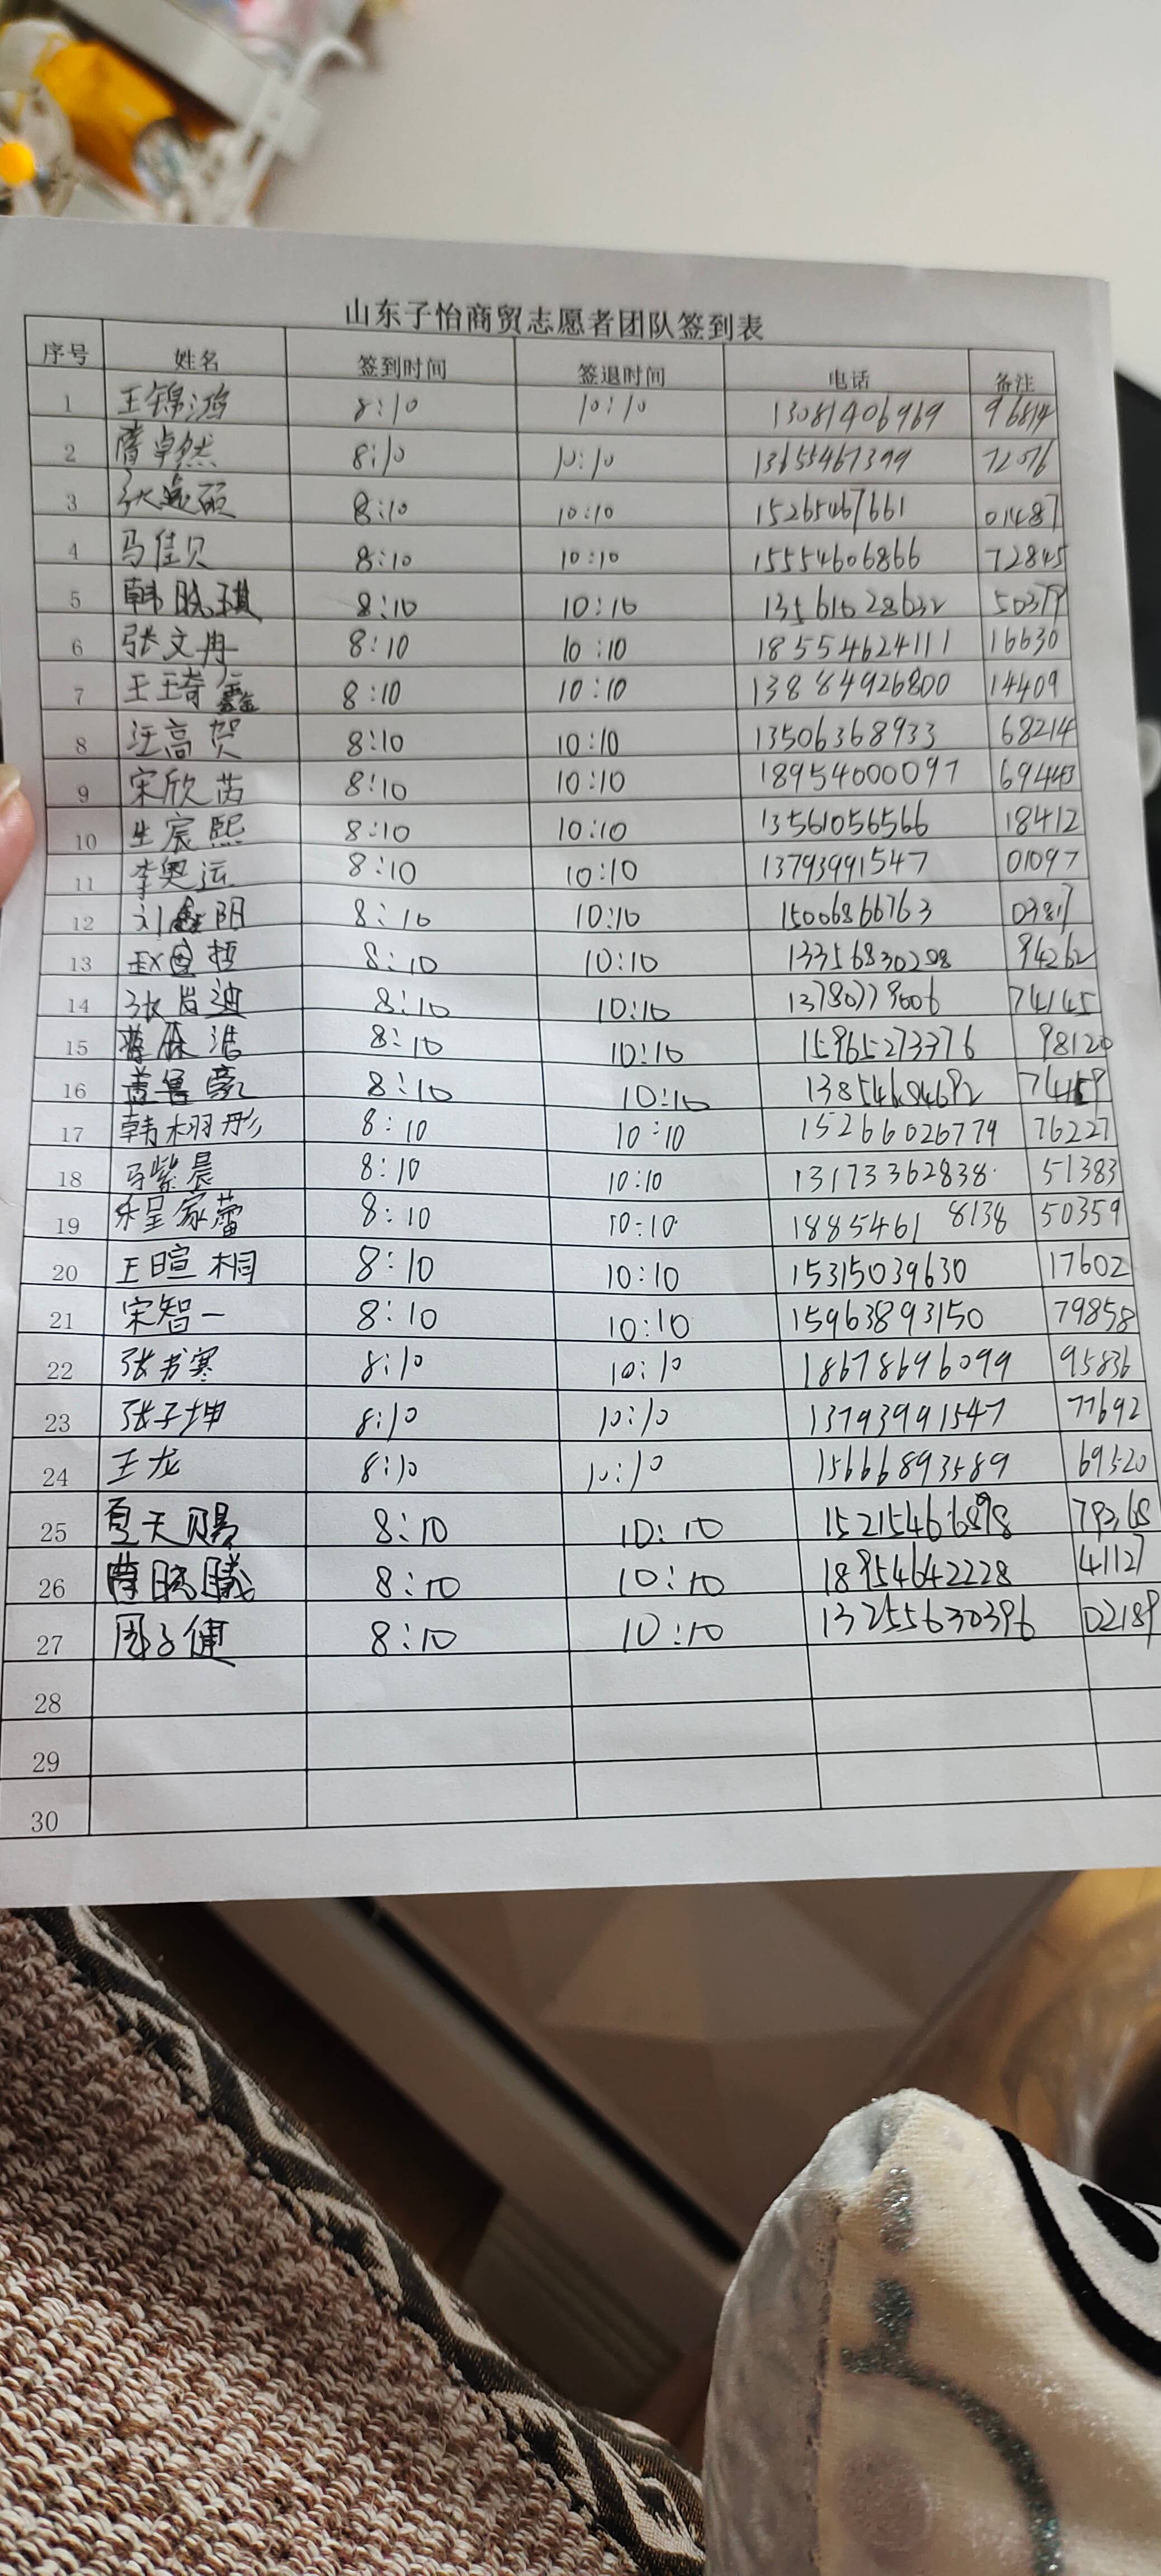 山东子怡商贸志愿者团队签到表
序号 姓名 签到时间 签退时间 电话 备注
1 王锦鸿 8:10 10:10 13081406969 96814
2 卓然 8:10 10:10 13655467399 72076
3 张硕 8:10 10:10 15265467661 01487
4 马佳贝 8:10 10:10 15554606866 72845
5 韩晓琪 8:10 10:10 13561028632 50379
6 张文冉 8:10 10:10 18554624111 16630
7 王琦鑫 8:10 10:10 13884926800 14409
8 汪高贺 8:10 10:10 13506368933 68214
9 宋欣芮 8:10 10:10 18954000097 69443
10 生宸熙 8:10 10:10 13561056566 18412
11 李奥运 8:10 10:10 13793991547 01097
12 刘鑫阳 8:10 10:10 15006866763 03817
13 哲 8:10 10:10 13356830208 94262
14 张肖迪 8:10 10:10 13780779006 74145
15 浩 8:10 10:10 15965273376 98120
16 盖鲁豪 8:10 10:10 13854684692
17 韩栩彤 8:10 10:10 15266026779 76227
18 马紫晨 8:10 10:10 13173362838 51383
19 家蕾 8:10 10:10 18854618138 50359
20 王暄桐 8:10 10:10 15315039630 17602
21 宋智一 8:10 10:10 15963893150 79858
22 张书寒 8:10 10:10 18678696099 95836
23 张子坤 8:10 10:10 13793991547 77692
24 王龙 8:10 10:10 15666893589 69520
25 夏天赐 8:10 10:10 15215466898 79368
26 晓曦 8:10 10:10 18954642228 41127
27 周子健 8:10 10:10 13255630396 02189
28
29
30